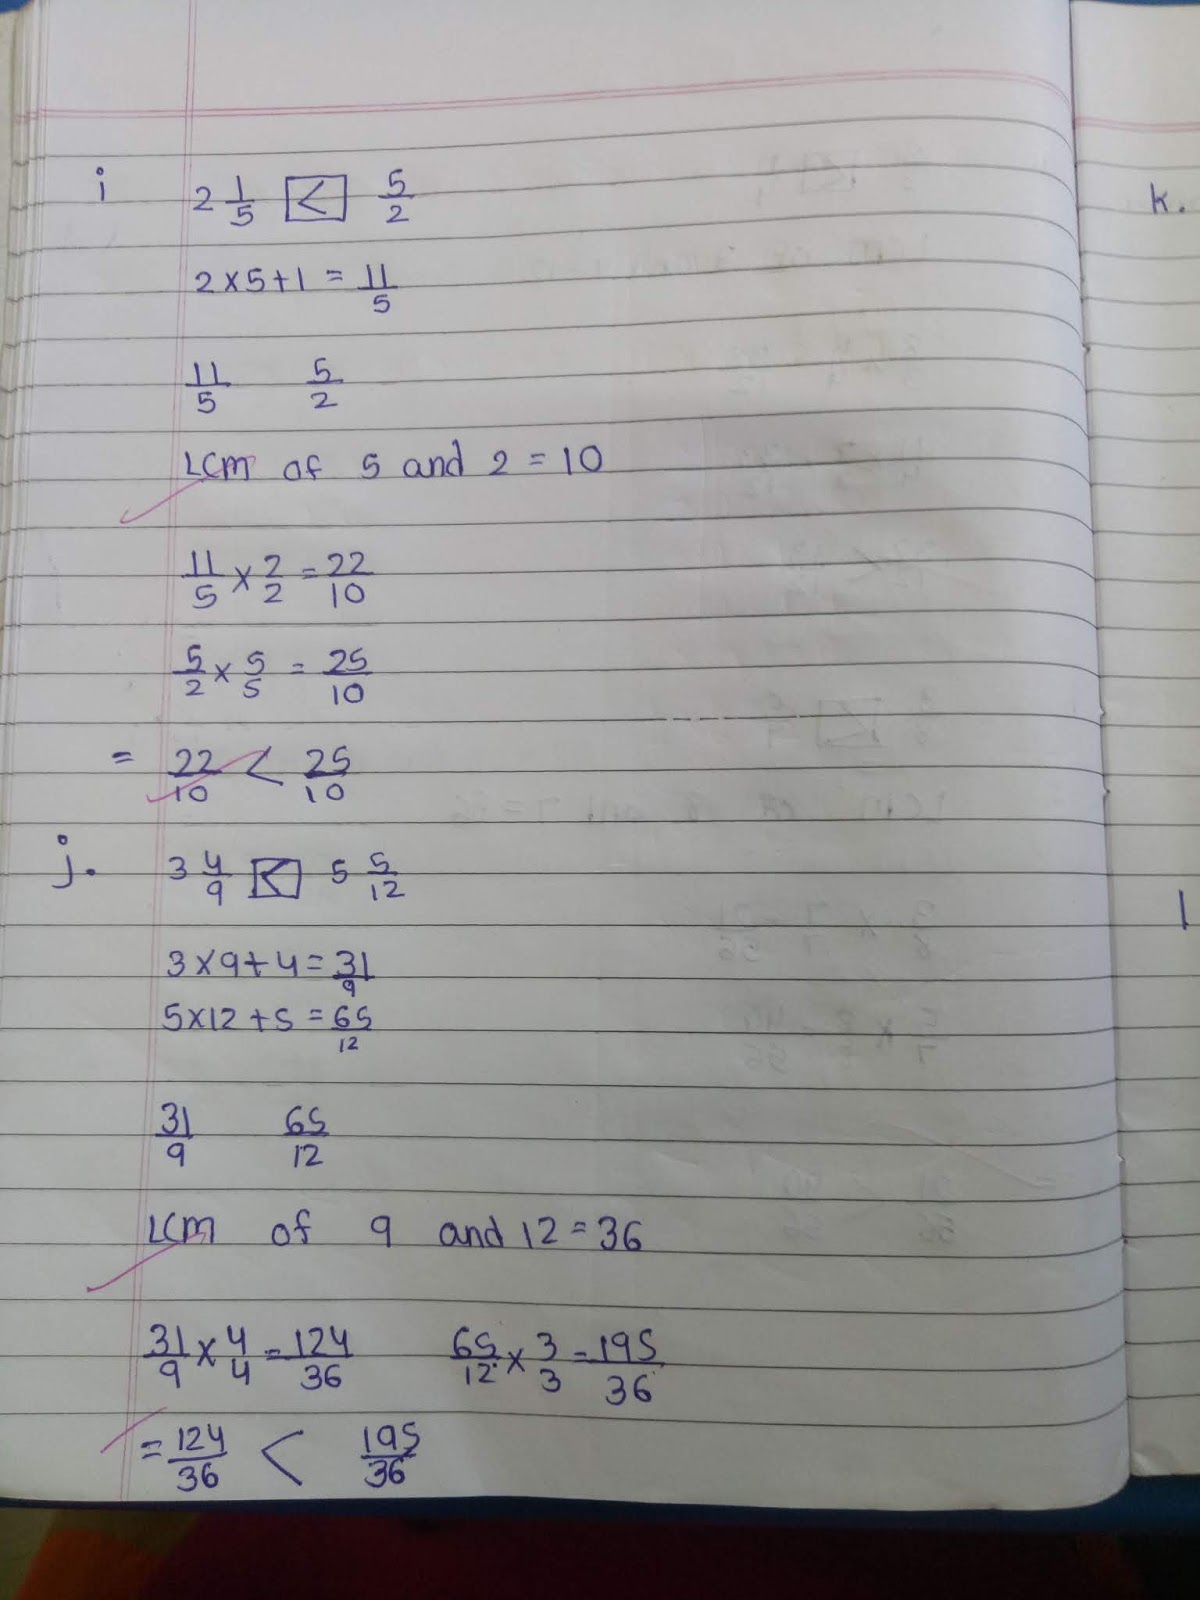 i 2 1/5 < 5/2
2×5+1 = 11/5
11/5 5/2
LCM of 5 and 2 = 10
11/5 × 2/2 = 22/10
5/2 × 5/5 = 25/10
= 22/10 < 25/10
j. 3 4/9 < 5 5/12
3×9+4 = 31/9
5×12+5 = 65/12
31/9 65/12
LCM of 9 and 12 = 36
31/9 × 4/4 = 124/36 65/12 × 3/3 = 195/36
= 124/36 < 195/36
k.
l